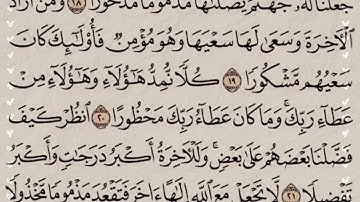 جَعَلْنَا لَهُۥ جَهَنَّمَ يَصْلَىٰهَا مَذْمُومًا مَّدْحُورًا ١٨ وَمَنْ أَرَادَ
ٱلْأَخِرَةَ وَسَعَىٰ لَهَا سَعْيَهَا وَهُوَ مُؤْمِنٌ فَأُو۟لَٰٓئِكَ كَانَ
سَعْيُهُم مَّشْكُورًا ١٩ كُلًّا نُّمِدُّ هَٰٓؤُلَآءِ وَهَٰٓؤُلَآءِ مِنْ
عَطَآءِ رَبِّكَ ۚ وَمَا كَانَ عَطَآءُ رَبِّكَ مَحْظُورًا ٢٠ ٱنظُرْ كَيْفَ
فَضَّلْنَا بَعْضَهُمْ عَلَىٰ بَعْضٍ ۚ وَلَلْأَخِرَةُ أَكْبَرُ دَرَجَٰتٍ وَأَكْبَرُ
تَفْضِيلًا ٢١ لَّا تَجْعَلْ مَعَ ٱللَّهِ إِلَٰهًا ءَاخَرَ فَتَقْعُدَ مَذْمُومًا مَّخْذُولًا